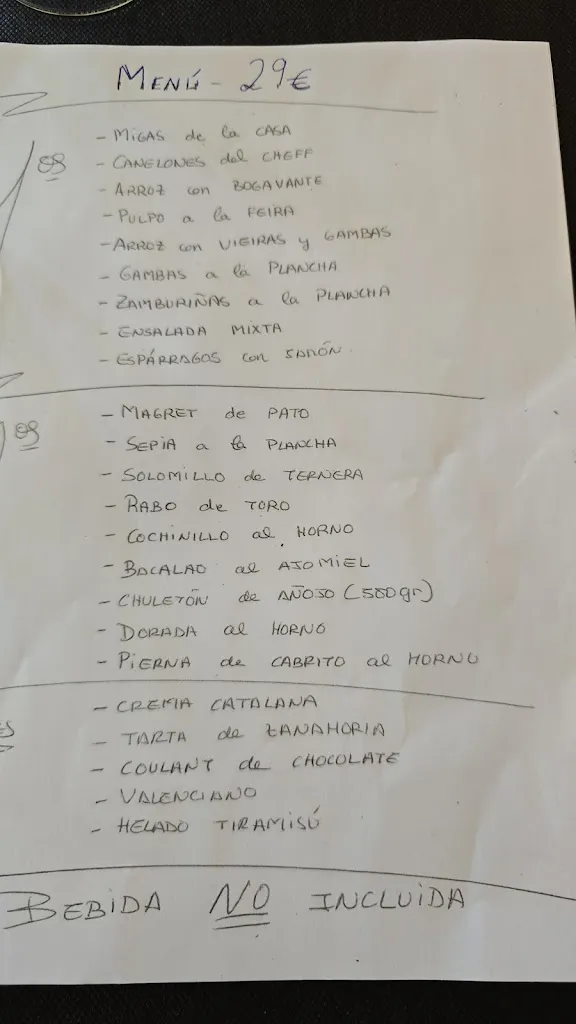 MENÚ - 29€
- MIGAS de la CASA
os
- CANELONES del CHEFF
- ARROZ con BOGAVANTE
- PULPO a la FEIRA
- ARROZ con VIEIRAS y GAMBAS
- GAMBAS a la PLANCHA
- ZAMBURIÑAS a la PLANCHA
- ENSALADA MIXTA
- ESPÁRRAGOS con JAMÓN.
- MAGRET de PATO
os
- SEPIA a la PLANCHA
- SOLOMILLO de TERNERA
- RABO de TORO
- COCHINILLO al HORNO
- BACALAO al AJOMIEL
- CHULETÓN de AÑOJO (500gr)
- DORADA al HORNO
- PIERNA de CABRITO al HORNO
- CREMA CATALANA
ES
- TARTA de ZANAHORIA
- COULANT de CHOCOLATE
- VALENCIANO
- HELADO TIRAMISÚ
BEBIDA NO INCLUIDA